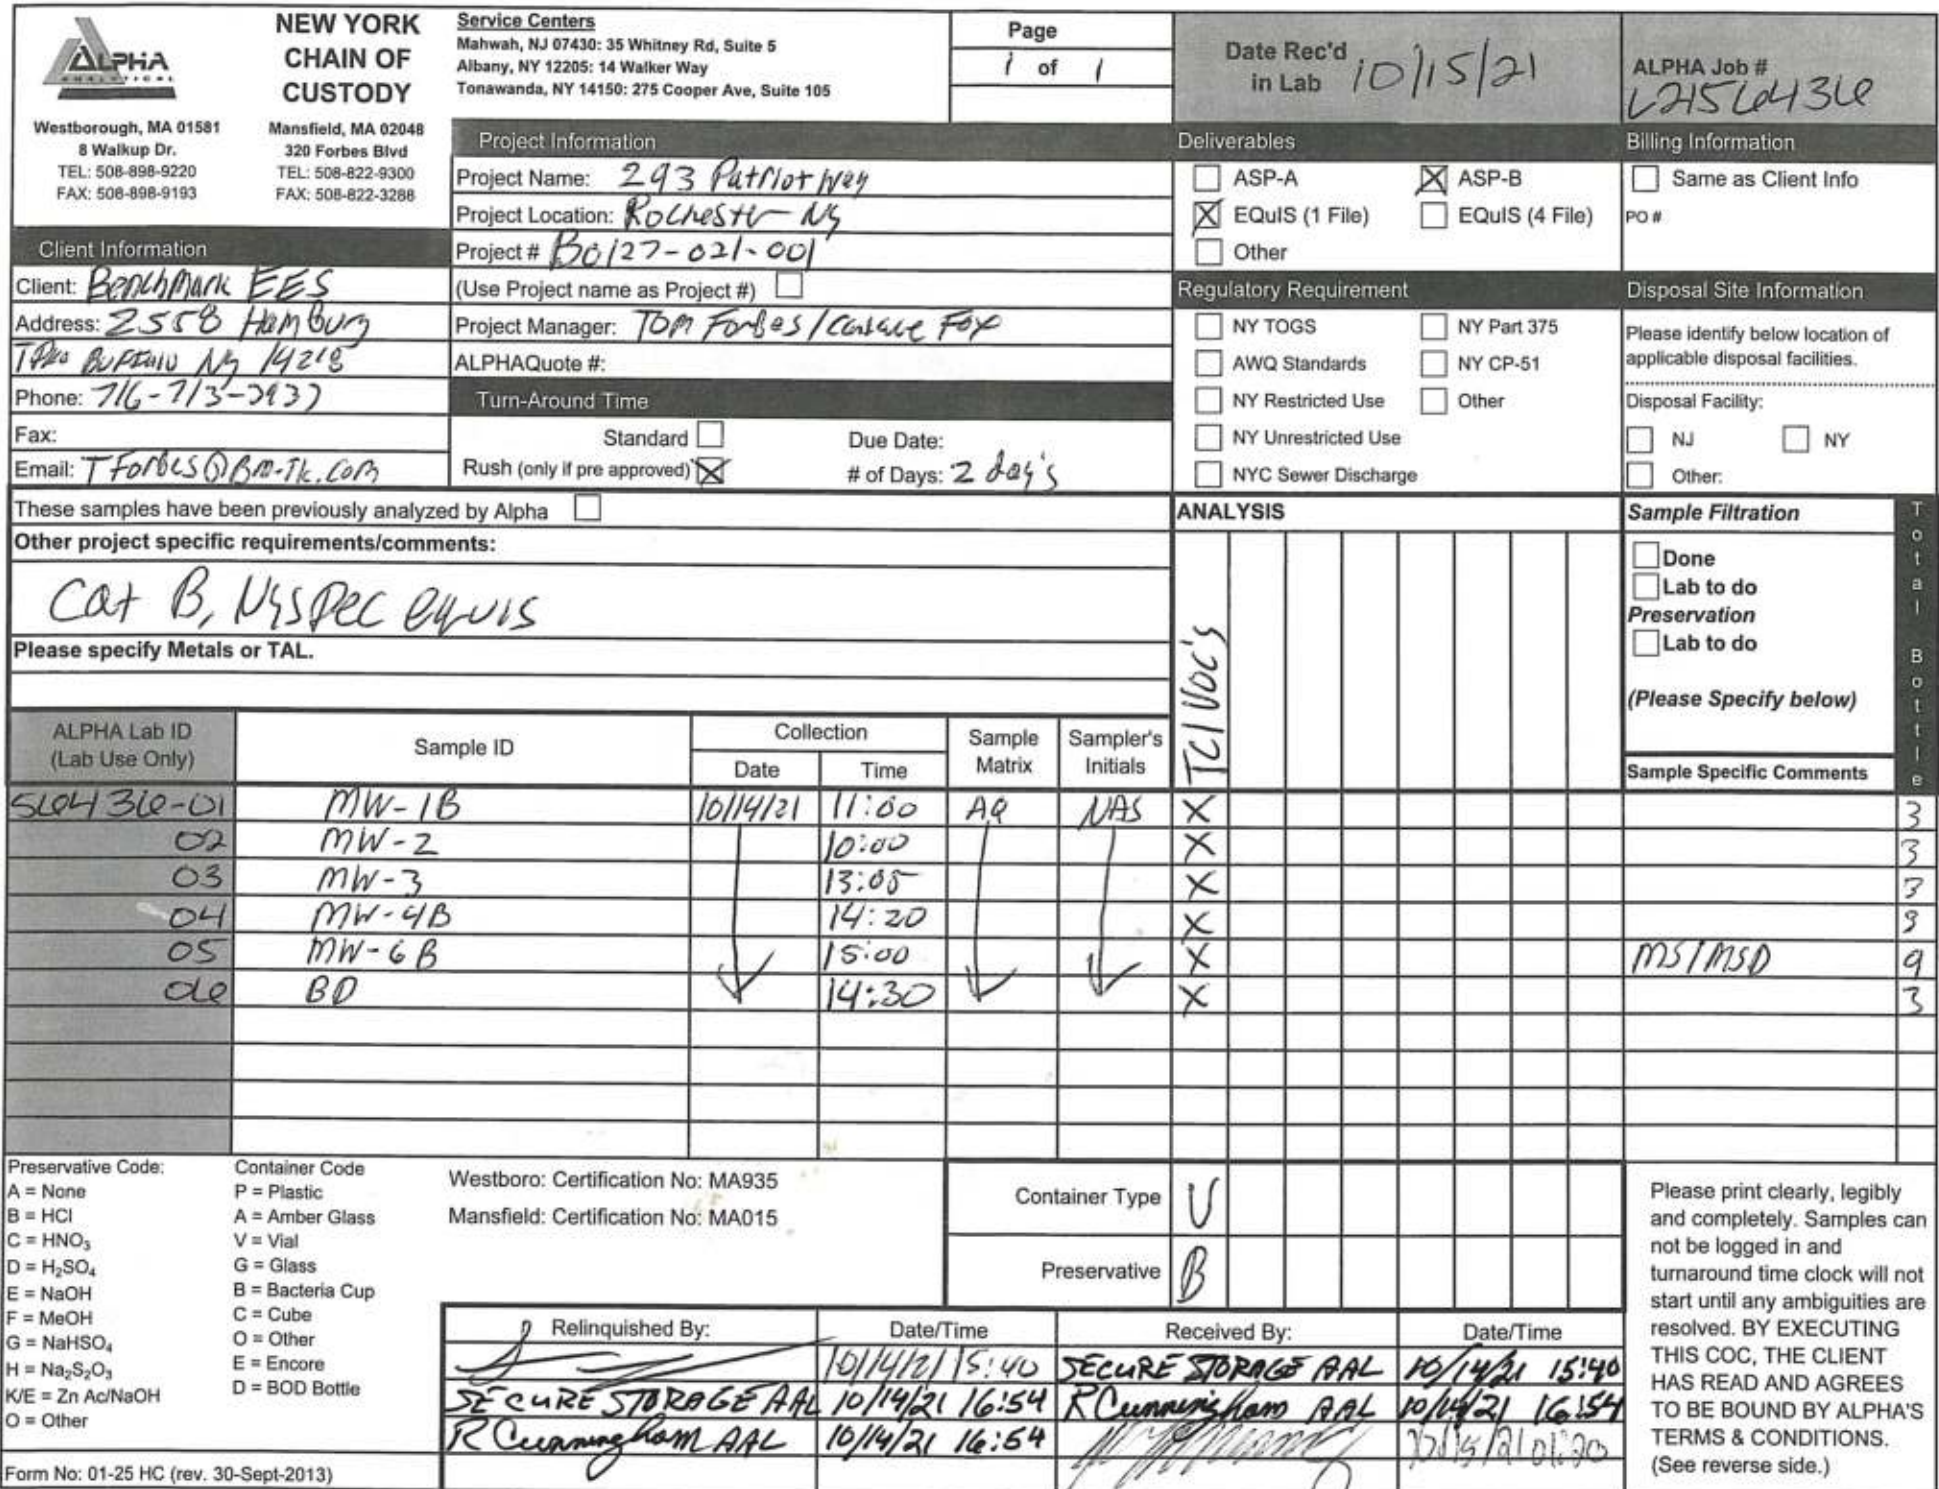 ALPHA
ANALYTICAL
NEW YORK
CHAIN OF
CUSTODY
Westborough, MA 01581
8 Walkup Dr.
TEL: 508-898-9220
FAX: 508-898-9193
Mansfield, MA 02048
320 Forbes Blvd
TEL: 508-822-9300
FAX: 508-822-3288
Service Centers
Mahwah, NJ 07430: 35 Whitney Rd, Suite 5
Albany, NY 12205: 14 Walker Way
Tonawanda, NY 14150: 275 Cooper Ave, Suite 105
Page
1 of 1
Date Rec'd
in Lab 10/15/21
ALPHA Job #
L2156436
Project Information
Project Name: 293 Patriot Way
Project Location: Rochester NY
Project # B0127-021-001
(Use Project name as Project #)
Project Manager: Tom Forbes / Fox
ALPHAQuote #:
Deliverables
ASP-A ASP-B
EQuIS (1 File) EQuIS (4 File)
Other
Billing Information
Same as Client Info
PO #
Client Information
Client: Benchmark EES
Address: 2558 Hamburg
Buffalo NY 14218
Phone: 716-713-
Fax:
Email: TForbes@Bm-Tk.com
Turn-Around Time
Standard Due Date:
Rush (only if pre approved) # of Days: 2 day's
Regulatory Requirement
NY TOGS NY Part 375
AWQ Standards NY CP-51
NY Restricted Use Other
NY Unrestricted Use
NYC Sewer Discharge
Disposal Site Information
Please identify below location of
applicable disposal facilities.
Disposal Facility:
NJ NY
Other:
These samples have been previously analyzed by Alpha
Other project specific requirements/comments:
Cat B, NYSDEC equis
Please specify Metals or TAL.
ANALYSIS
TCl VOC's
Sample Filtration
Done
Lab to do
Preservation
Lab to do
(Please Specify below)
Total Bottle
ALPHA Lab ID
(Lab Use Only)
Sample ID
Collection
Date Time
Sample
Matrix
Sampler's
Initials
Sample Specific Comments
56436-01 MW-1B 10/14/21 11:00 AQ NAS X 3
02 MW-2 10:00 X 3
03 MW-3 13:05 X 3
04 MW-4B 14:20 X 3
05 MW-6B 15:00 X MS/MSD 9
06 BD 14:30 X 3
Preservative Code:
A = None
B = HCl
C = HNO₃
D = H₂SO₄
E = NaOH
F = MeOH
G = NaHSO₄
H = Na₂S₂O₃
K/E = Zn Ac/NaOH
O = Other
Container Code
P = Plastic
A = Amber Glass
V = Vial
G = Glass
B = Bacteria Cup
C = Cube
O = Other
E = Encore
D = BOD Bottle
Westboro: Certification No: MA935
Mansfield: Certification No: MA015
Container Type V
Preservative B
Relinquished By: Date/Time Received By: Date/Time
10/14/21 15:40 SECURE STORAGE AAL 10/14/21 15:40
SECURE STORAGE AAL 10/14/21 16:54 R Cunningham AAL 10/14/21 16:54
R Cunningham AAL 10/14/21 16:54
Please print clearly, legibly
and completely. Samples can
not be logged in and
turnaround time clock will not
start until any ambiguities are
resolved. BY EXECUTING
THIS COC, THE CLIENT
HAS READ AND AGREES
TO BE BOUND BY ALPHA'S
TERMS & CONDITIONS.
(See reverse side.)
Form No: 01-25 HC (rev. 30-Sept-2013)